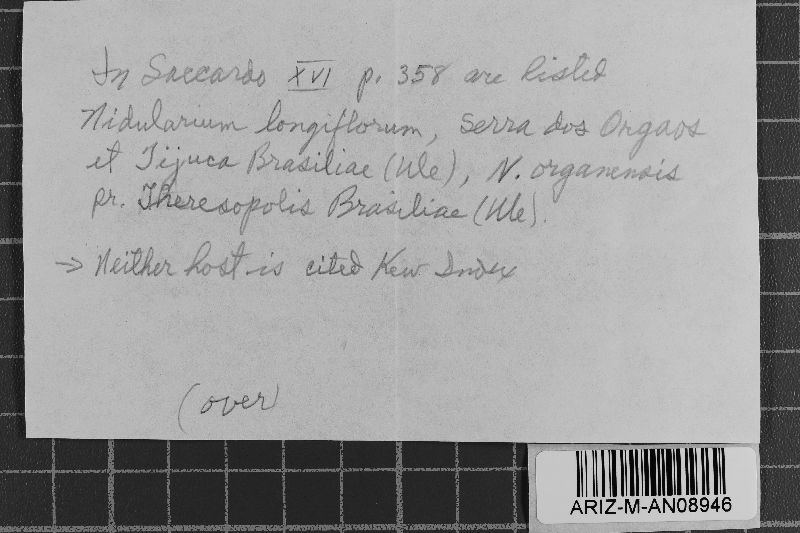 In Saccardo XVI p. 358 are listed
Nidularium longiflorum, Serra dos Orgaos
et Tijuca Brasiliae (Ule), N. organensis
pr. Theresopolis Brasiliae (Ule).
→ Neither host is cited Kew Index
(over)
ARIZ-M-AN08946